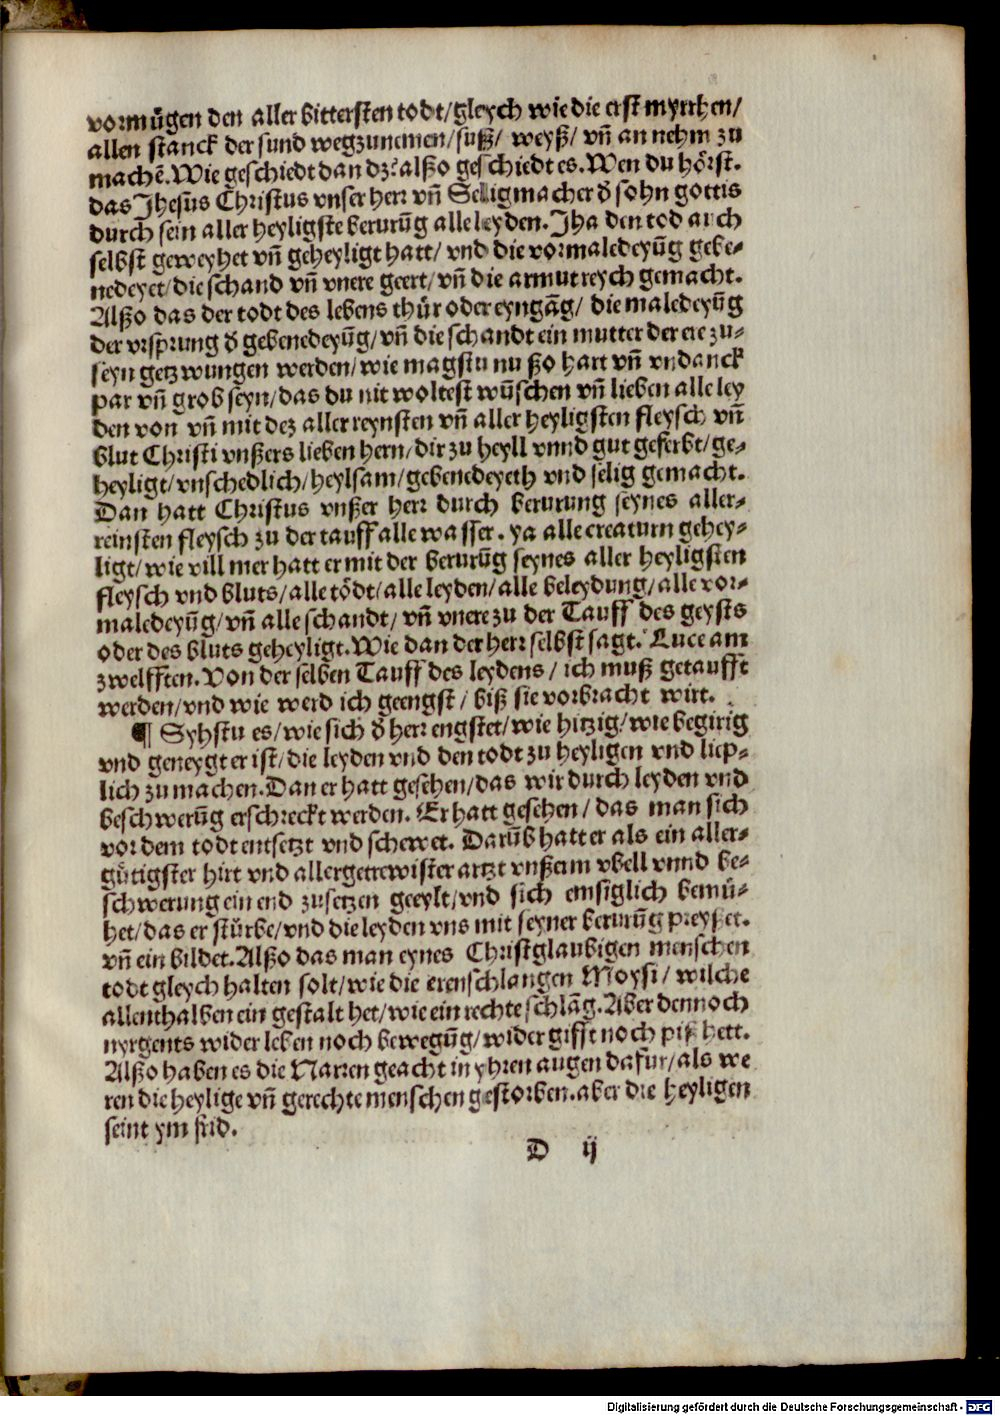 vormügen den aller bittersten todt/gleych wie die erst myrrhen/
allen stanck der sund wegzunemen/suß/ weyß/ vñ an nehm zu
machē. Wie geschiedt dan dz? alßo geschiedt es. Wen du hörst.
das Jhesus Christus vnser herr vñ Seligmacher d̄ sohn gottis
durch sein aller heyligste berurūg alle leyden. Jha den tod auch
selbst geweyhet vñ geheyligt hatt/ vnd die vormaledeyūg gebe-
nedeyet/die schand vñ vnere geert/vñ die armut reych gemacht.
Alßo das der todt des lebens thür oder eyngāg/ die maledeyūg
der vrsprung d̄ gebenedeyūg/vñ die schandt ein mutter der ere zu-
seyn getzwungen werden/wie magstu nu ßo hart vñ vndanck
par vñ grob seyn/das du nit woltest wūschen vñ lieben alle ley
den von vñ mit dez aller reynsten vñ aller heyligsten fleysch vñ
blut Christi vnßers lieben hern/dir zu heyll vnnd gut geferbt/ge-
heyligt/vnschedlich/heylsam/gebenedeyeth vnd selig gemacht.
Dan hatt Christus vnßer herr durch berurung seynes aller-
reinsten fleysch zu der tauff alle wasser. ya alle creaturn gehey-
ligt/wie vill mer hatt er mit der berurūg seynes aller heyligsten
fleysch vnd bluts/alle tödt/alle leyden/alle beleydung/alle vor-
maledeyūg/vñ alle schandt/ vñ vnere zu der Tauff des geysts
oder des bluts geheyligt. Wie dan der herr selbst sagt. Luce am
zwelfften. Von der selben Tauff des leydens/ ich muß getaufft
werden/vnd wie werd ich geengst/ biß sie vorbracht wirt.
¶ Syhstu es/wie sich d̄ herr engstet/wie hitzig/wie begirig
vnd geneygt er ist/die leyden vnd den todt zu heyligen vnd liep-
lich zu machen. Dan er hatt gesehen/das wir durch leyden vnd
beschwerūg erschreckt werden. Er hatt gesehen/ das man sich
vor dem todt entsetzt vnd schewet. Darūb hatt er als ein aller-
gütigster hirt vnd allergetrewister artzt vnßem vbell vnnd be-
schwerung ein end zusetzen geeylt/vnd sich emsiglich bemü-
het/das er stürbe/vnd die leyden vns mit seyner berurūg preyßet.
vñ ein bildet. Alßo das man eynes Christglaubigen menschen
todt gleych halten solt/wie die erenschlangen Moysi/ wilche
allenthalben ein gestalt het/wie ein rechte schlāg. Aber dennoch
nyrgents wider leben noch bewegūg/wider gifft noch piß hett.
Alßo haben es die Narren geacht in yhren augen dafur/als we
ren die heylige vñ gerechte menschen gestorben. aber die heyligen
seint ym frid.
D ij
Digitalisierung gefördert durch die Deutsche Forschungsgemeinschaft - DFG